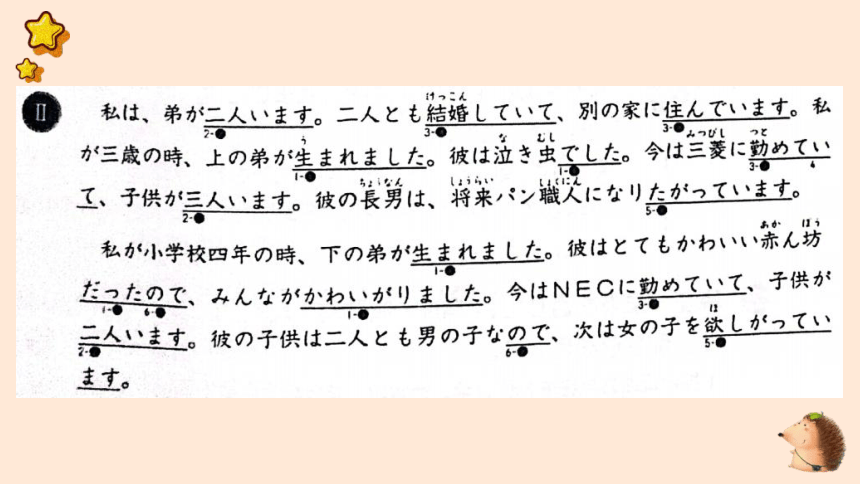 II
けっこん
私は、弟が二人います。二人とも結婚していて、別の家に住んでいます。私
2-● 3-● 3-●
う な むし みつびし つと
が三歳の時、上の弟が生まれました。彼は泣き虫でした。今は三菱に勤めてい
1-● 1-● 3-●
ちょうなん しょうらい しょくにん
て、子供が三人います。彼の長男は、将来パン職人になりたがっています。
2-● 5-●
あか ぼう
私が小学校四年の時、下の弟が生まれました。彼はとてもかわいい赤ん坊
1-●
だったので、みんながかわいがりました。今はNECに勤めていて、子供が
1-● 6-● 1-● 3-●
ほ
二人います。彼の子供は二人とも男の子なので、次は女の子を欲しがってい
2-● 6-● 5-●
ます。